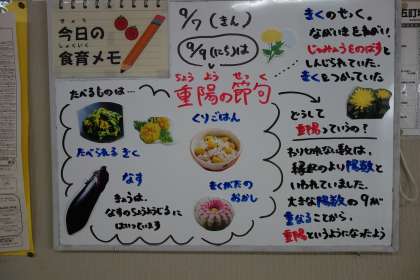 きょう
今日の
しょくいく
食育メモ
9/7（きん）
9/9（にち）は
ちょうよう せっく
重陽の節句
きくのせっく。
ながいきをねがい、
じゅみょうをのばすと
しんじられていた
きくをつかっていた
たべるものは…
たべられる きく
くりごはん
なす
きょうは、
なすのちゅうじるに
はいっています
きくがたの
おかし
どうして
重陽っていうの？
わりきれない数は、
縁起のより陽数と
いわれていました。
大きな陽数の9が
重なることから、
重陽というようになったよう